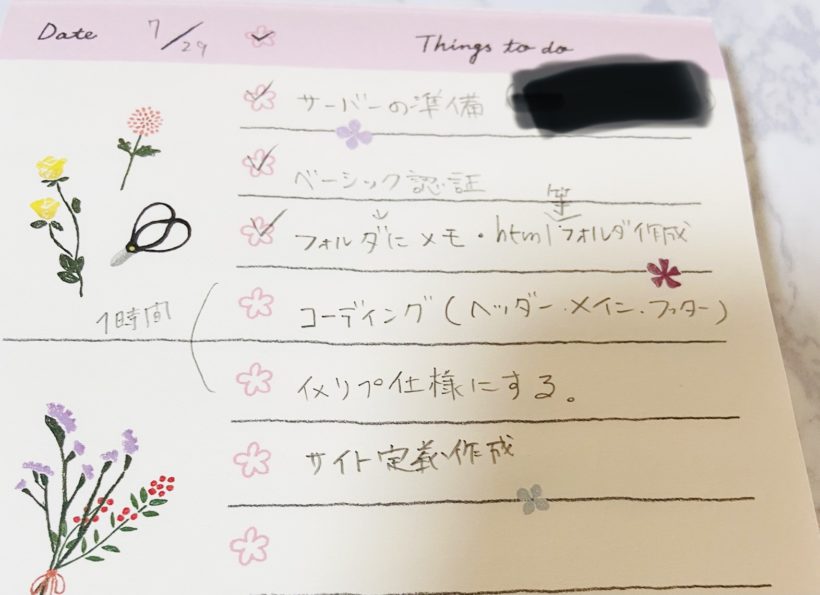 Date 7/29 Things to do
サーバーの準備
ベーシック認証
等
フォルダにメモ・htmlフォルダ作成
1時間
コーディング(ヘッダー・メイン・フッター)
イメリプ仕様にする。
サイト定義作成